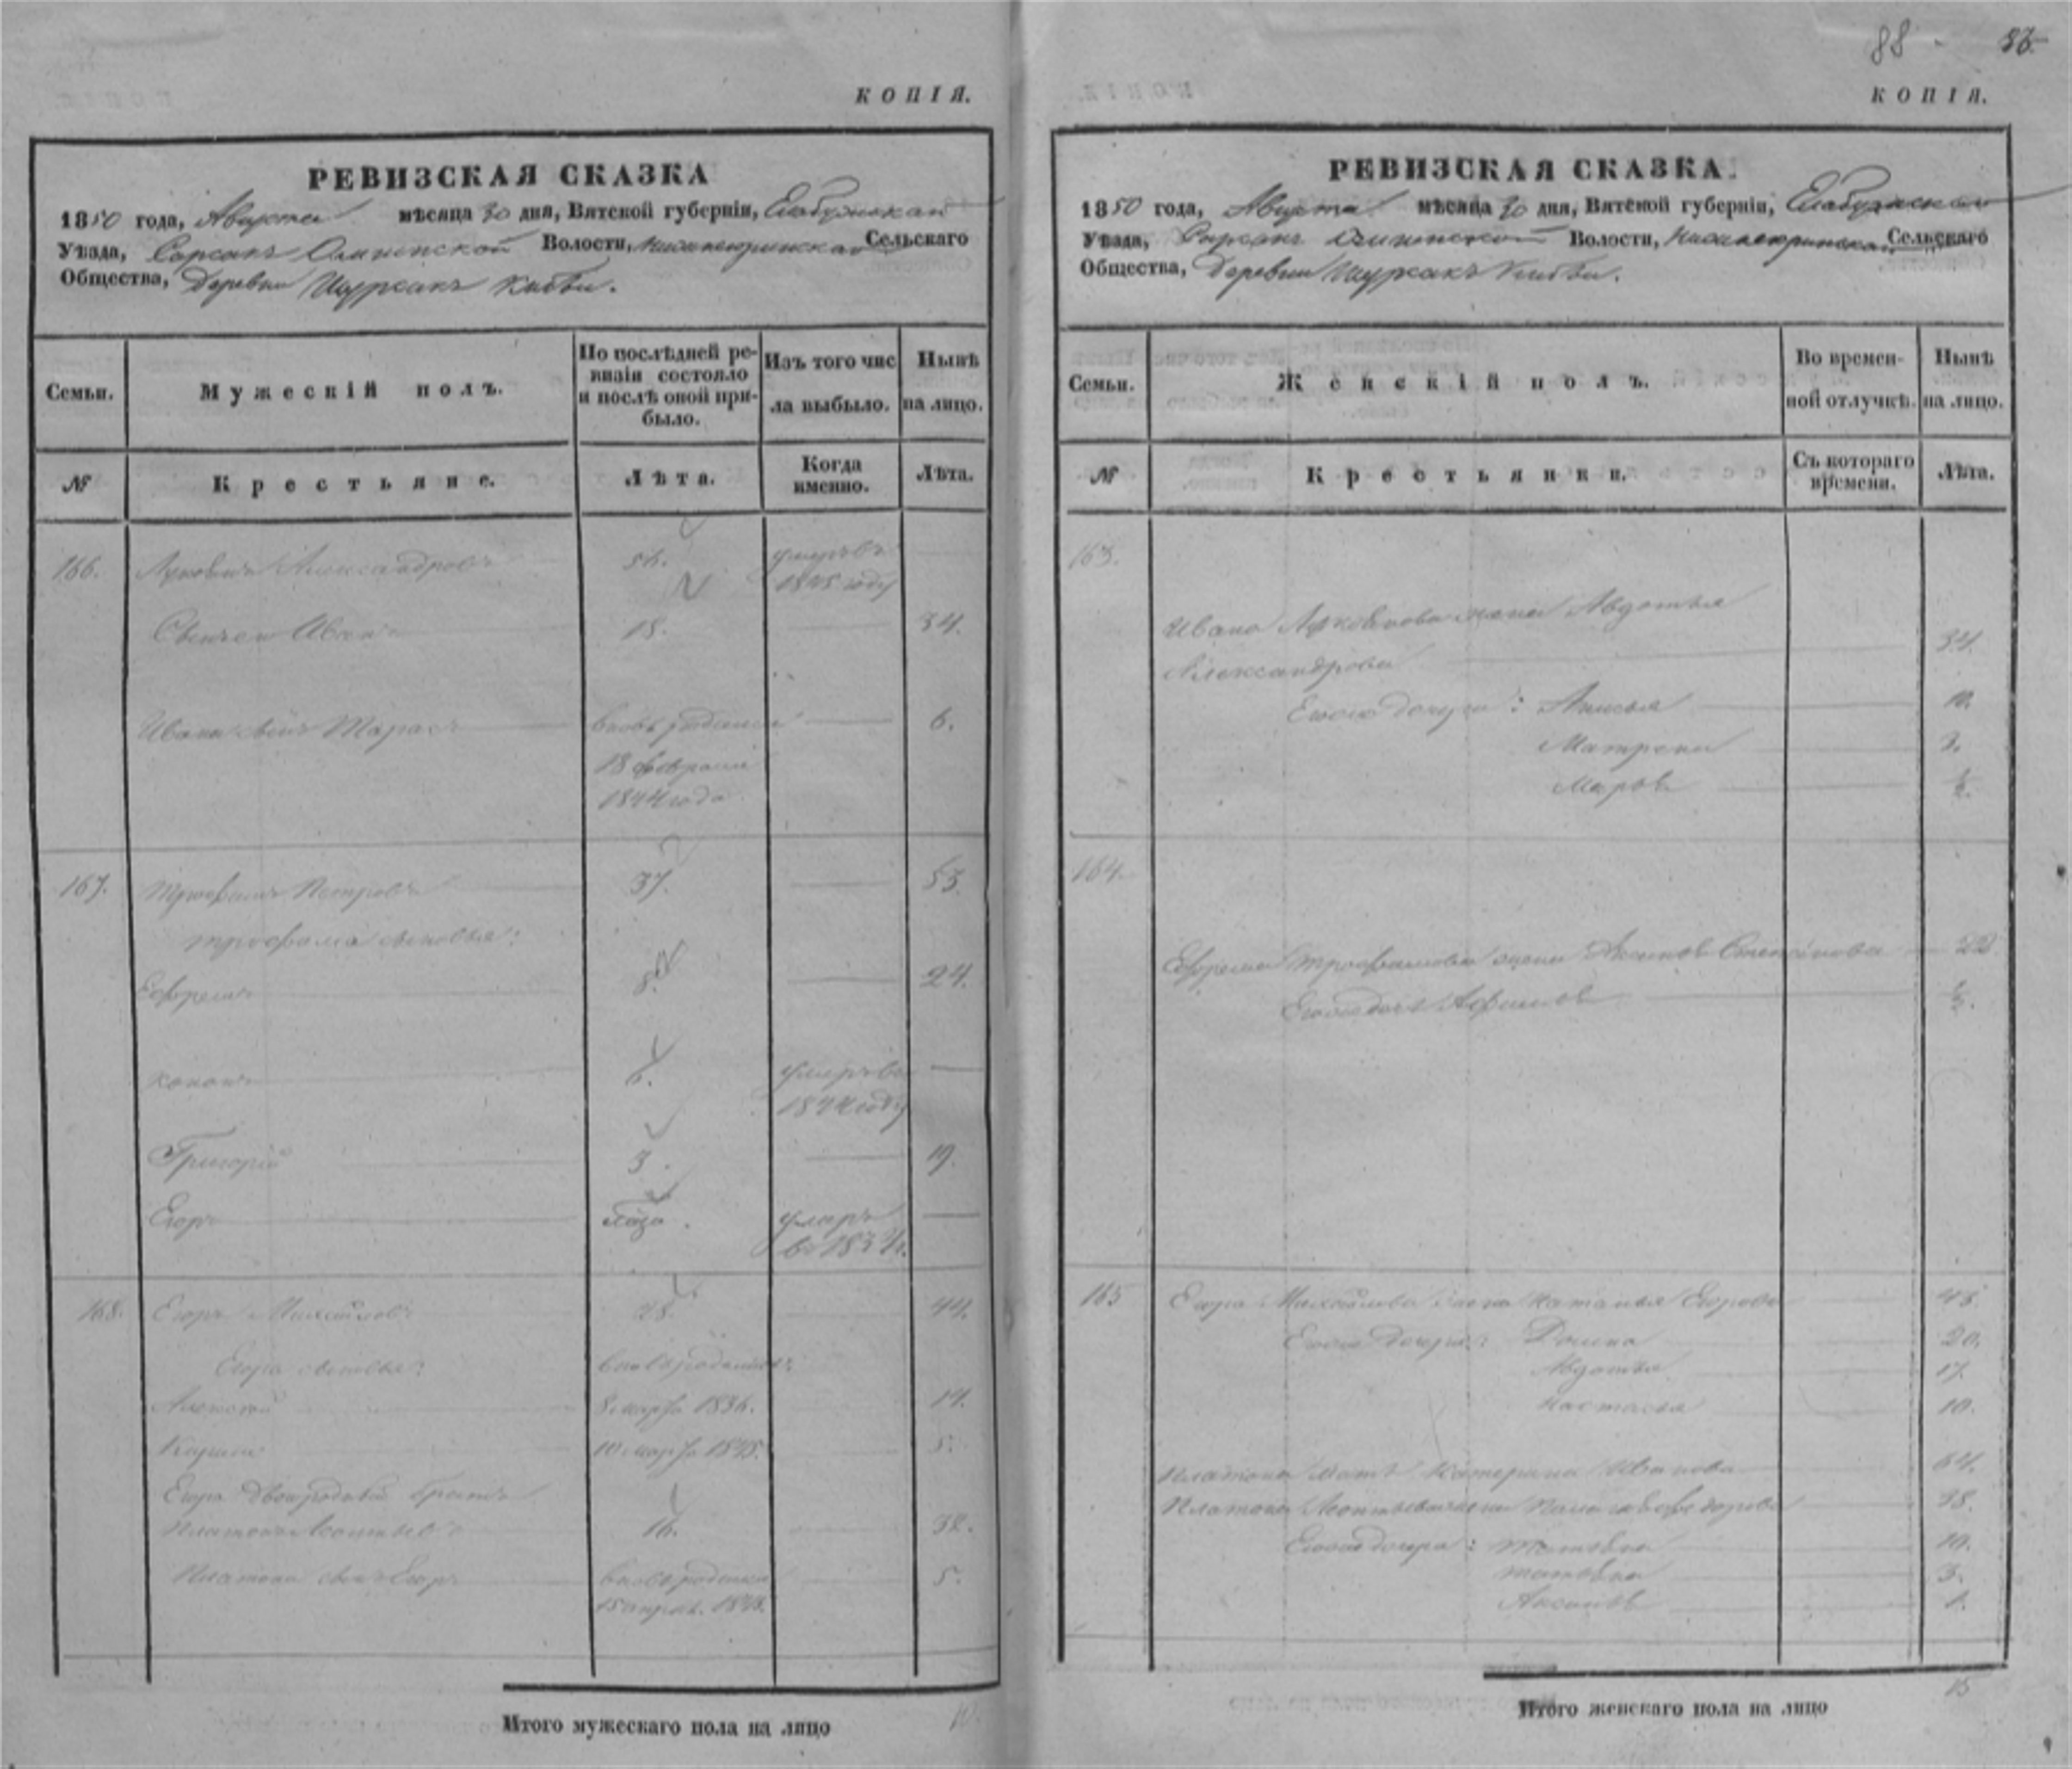 КОПІЯ.
РЕВИЗСКАЯ СКАЗКА
1850 года, Августа мѣсяца 30 дня, Вятской губерніи, Елабужскаго
Уѣзда, Сарсакъ Омгинской Волости, Сельскаго
Общества, Деревни
Семьи.
Мужескій полъ.
По послѣдней ре-
визіи состояло
и послѣ оной при-
было.
Изъ того чис
ла выбыло.
Нынѣ
на лицо.
№
Крестьяне.
Лѣта.
Когда
именно.
Лѣта.
166. Александровъ 56. умеръ въ
1845 году
Иванъ 18. 34.
Ивана сынъ Тарасъ вновь рожденъ 6.
18 февраля
1844 года
167. Трофимъ Петровъ 37. 53.
Трофима сыновья:
Ефремъ 8. 24.
Кононъ 6. умеръ въ
1844 году
Григорій 3. 19.
Егоръ умеръ
въ 183
168. Егоръ Михайловъ 28. 44.
Егора сыновья: вновь рожденные:
Алексей 8 марта 1836. 14.
10 марта 1845. 5.
Егора двоюродный братъ
Платонъ Леонтьевъ 16. 32.
Платона сынъ Егоръ вновь рожденъ 5.
15 апрѣля 1845.
Итого мужескаго пола на лицо 10.
88
КОПІЯ.
РЕВИЗСКАЯ СКАЗКА.
1850 года, Августа мѣсяца 30 дня, Вятской губерніи, Елабужскаго
Уѣзда, Сарсакъ Омгинской Волости, Сельскаго
Общества, Деревни
Семьи.
Женскій полъ.
Во времен-
ной отлучкѣ.
Нынѣ
на лицо.
№
Крестьянки.
Съ котораго
времени.
Лѣта.
163.
Ивана жена Авдотья
Александрова 34.
Егоже дочери: Анисья 10.
Матрена 3.
Марѳа ½.
164.
Ефрема Трофимова жена Аксинья Степанова 22
Егоже дочь Афимья ½.
165 Егора Михайлова жена Наталья Егорова 45.
Егоже дочери: Домна 20.
Авдотья 17.
Настасья 10.
Платона мать Катерина Иванова 64.
Платона Леонтьева жена Федорова 38.
Егоже дочери: Татьяна 10.
Татьяна 3.
Аксинья 1.
Итого женскаго пола на лицо 15